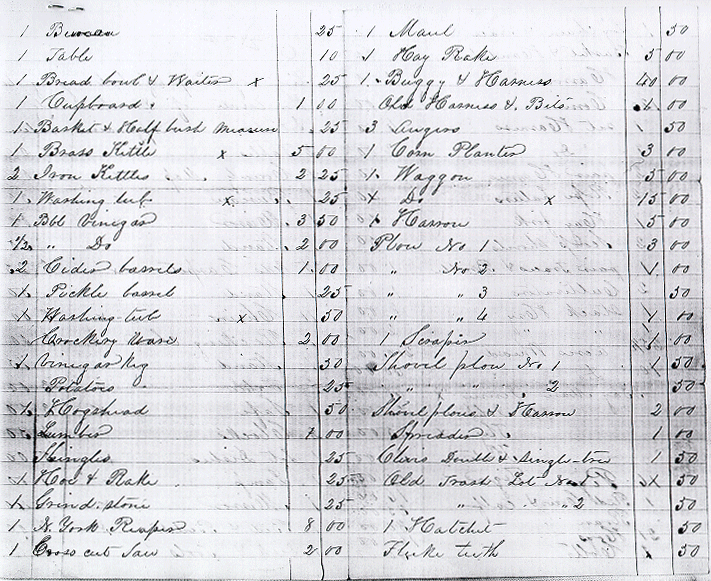 1 Bureau 25
1 Table 10
1 Bread bowl & Waiter x 25
1 Cupboard 1 00
1 Basket & Half bush measure 25
1 Brass Kittle x 5 00
2 Iron Kettles 2 25
1 Washing tub x 25
1 Bbl Vinegar 3 50
1/2 " Do 2 00
2 Cider barrels 1 00
1 Pickle barrel 25
1 Washing tub x 50
Crockery ware 2 00
1 Vinegar Keg 50
Potatoes 25
1 Hogshead 50
Lumber 7 00
Shingles 25
1 Hoe & Rake 25
1 Grind stone 25
1 N. York Reaper 8 00
1 Cross cut Saw 2 00
1 Maul 50
1 Hay Rake 5 00
1 Buggy & Harness 40 00
Old Harness & Bits 1 00
3 Augers 1 50
1 Corn Planter 3 00
1 Waggon 5 00
1 Do x 15 00
1 Harrow 5 00
Plow No 1 3 00
" No 2 1 00
" " 3 50
" " 4 1 00
1 Scraper 1 00
Shovil plow No 1 1 50
" " 2 50
Shovil plows & Harrow 2 00
Spreader 1 00
Clevis Double & Single-tree 1 50
Old Trash Lot No 1 1 50
" " 2 50
1 Hatchet 50
teeth 50